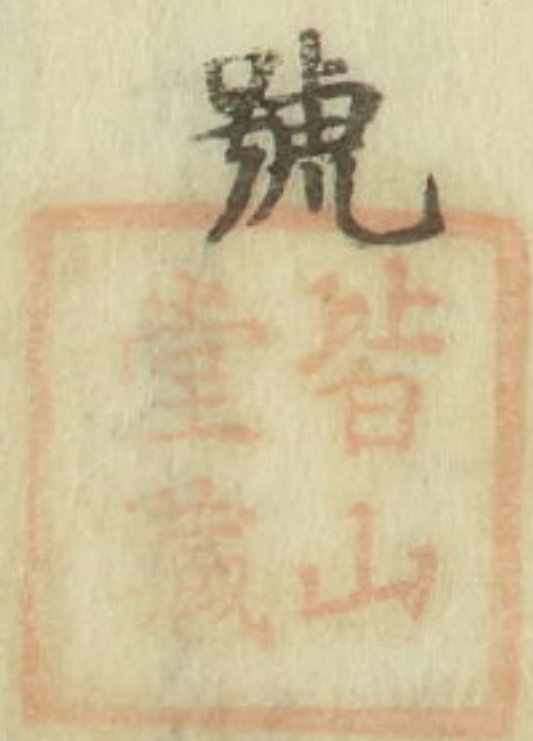 號
皆山
堂藏